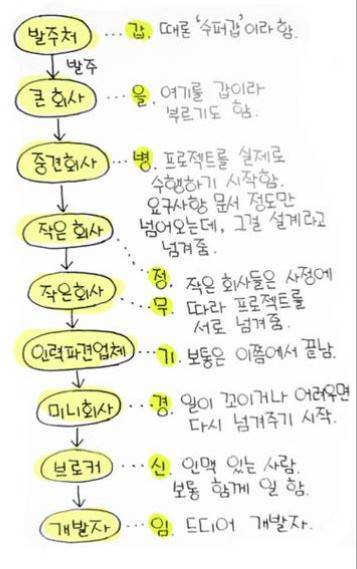 발주처 ··· 갑. 때론 '수퍼갑'이라 함.
발주
큰 회사 ··· 을. 여기를 갑이라
부르기도 함.
중견회사 ··· 병. 프로젝트를 실제로
수행하기 시작함.
요구사항 문서 정도만
작은 회사 넘어오는데, 그걸 설계라고
넘겨줌.
정. 작은 회사들은 사정에
작은회사 ··· 무. 따라 프로젝트를
서로 넘겨줌.
인력파견업체 ··· 기. 보통은 이쯤에서 끝남.
미니회사 ··· 경. 일이 꼬이거나 어려우면
다시 넘겨주기 시작.
브로커 ··· 신. 인맥 있는 사람.
보통 함께 일 함.
개발자 ··· 임. 드디어 개발자.